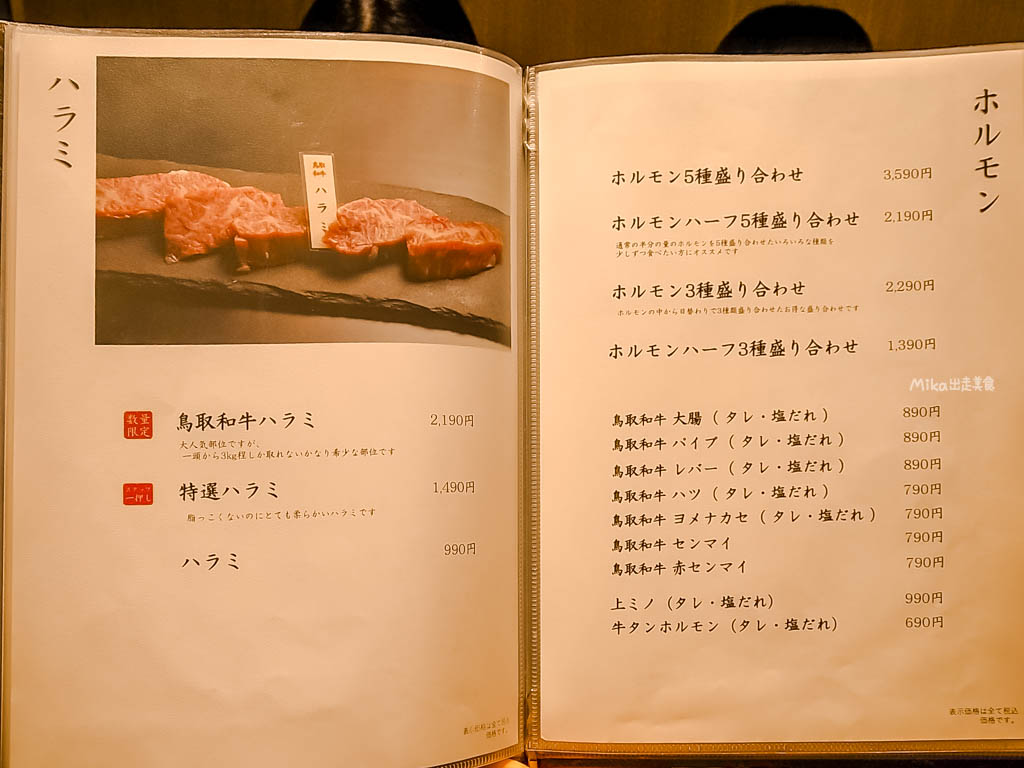 ハラミ
鳥取
和牛
ハラミ
数量
限定
鳥取和牛ハラミ 2,190円
大人気部位ですが、
一頭から3kg程しか取れないかなり希少な部位です
スタッフ
一押し
特選ハラミ 1,490円
脂っこくないのにとても柔らかいハラミです
ハラミ 990円
表示価格は全て税込
価格です。
ホルモン
ホルモン5種盛り合わせ 3,590円
ホルモンハーフ5種盛り合わせ 2,190円
通常の半分の量のホルモンを5種盛り合わせたいろいろな種類を
少しずつ食べたい方にオススメです
ホルモン3種盛り合わせ 2,290円
ホルモンの中から日替わりで3種類盛り合わせたお得な盛り合わせです
ホルモンハーフ3種盛り合わせ 1,390円
Mika出走美食
鳥取和牛 大腸 ( タレ・塩だれ ) 890円
鳥取和牛 パイプ ( タレ・塩だれ ) 890円
鳥取和牛 レバー ( タレ・塩だれ ) 890円
鳥取和牛 ハツ ( タレ・塩だれ ) 790円
鳥取和牛 ヨメナカセ ( タレ・塩だれ ) 790円
鳥取和牛 センマイ 790円
鳥取和牛 赤センマイ 790円
上ミノ (タレ・塩だれ) 990円
牛タンホルモン (タレ・塩だれ) 690円
表示価格は全て税込
価格です。